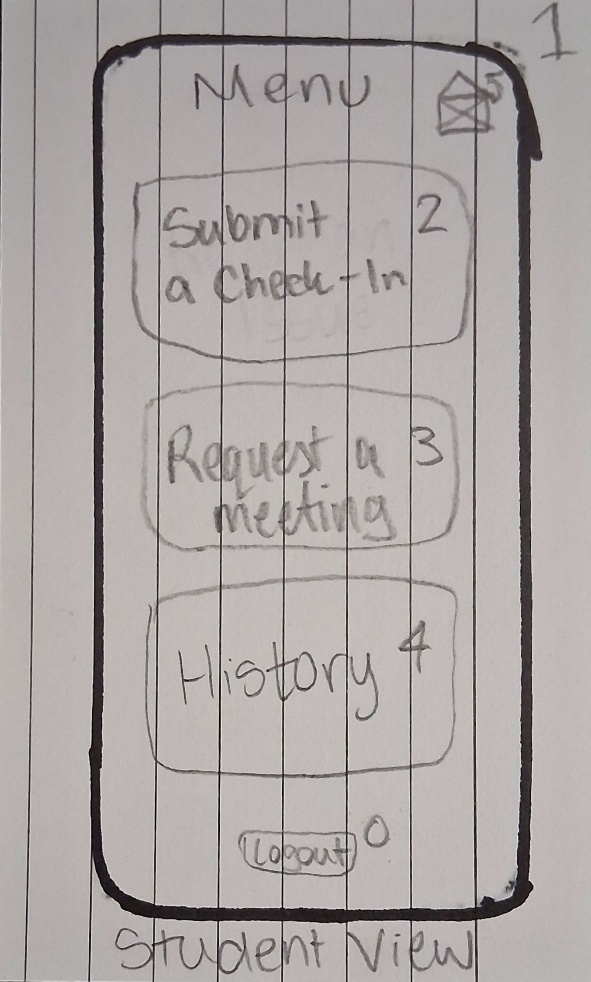 1
Menu 5
Submit 2
a Check-In
Request a 3
meeting
History 4
Logout 0
Student View